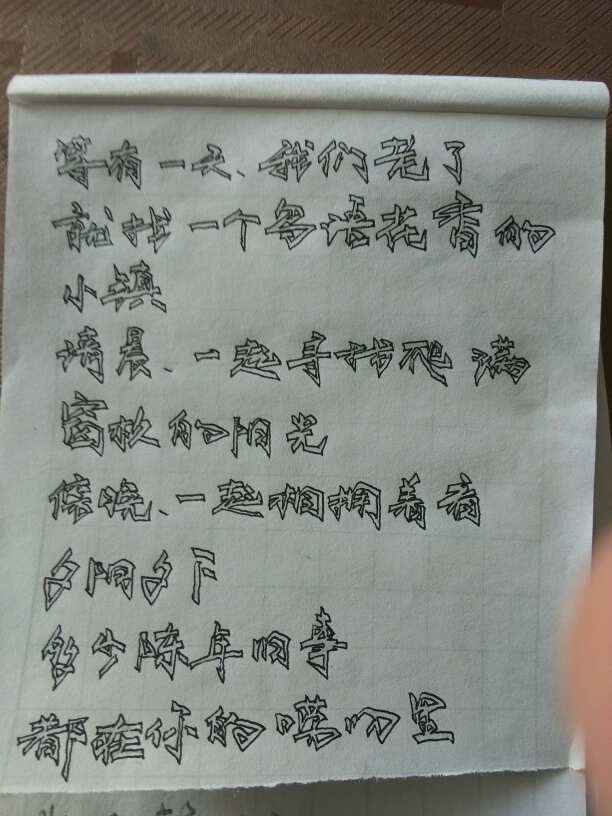 等有一天、我们老了
就找一个鸟语花香的
小镇
清晨、一起寻找爬满
窗棂的阳光
傍晚、一起相拥着看
夕阳夕下
多少陈年旧事
都在你的叹吻里